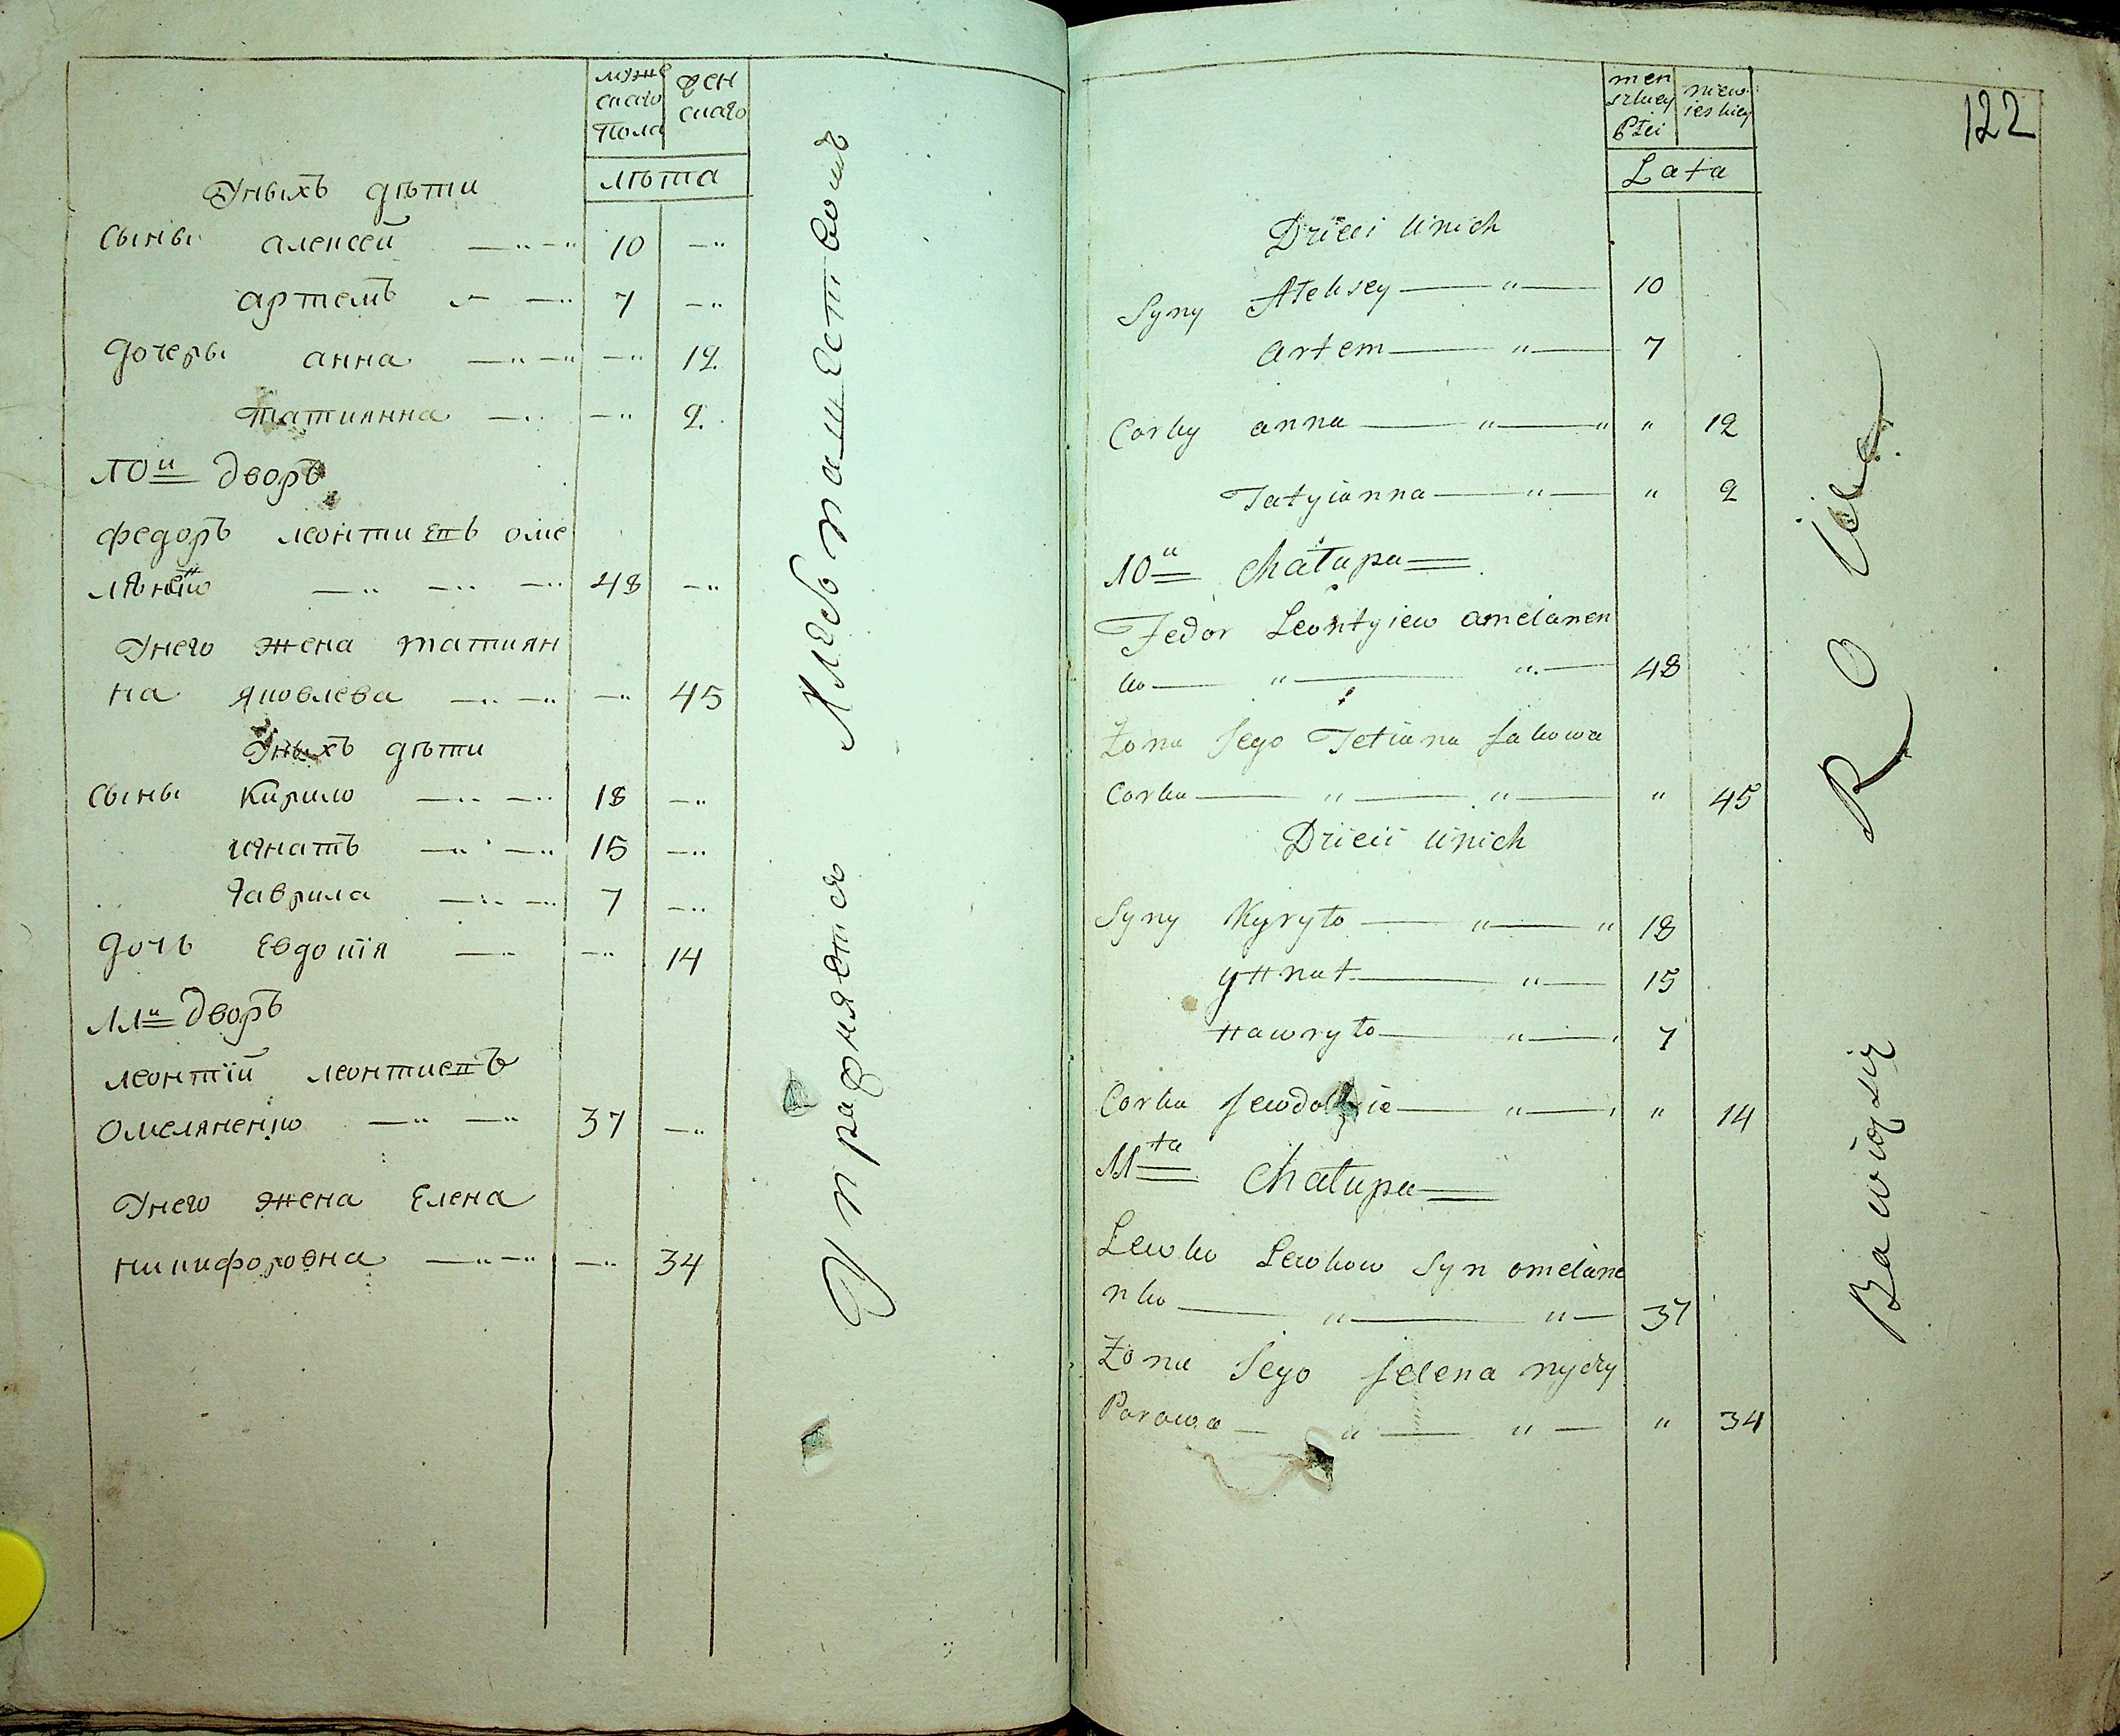 муже
скаго
Пола
жен
скаго
лѣта
Уныхъ дѣти
Сыны алексей 10
артемъ 7
дочеры анна 12
татиянна 2
10й дворъ
федоръ леонтиевъ оме
лѣненко 48
Унего жена татиян
на яковлева 45
Уныхъ дѣти
Сыны Кирило 18
игнатъ 15
гаврила 7
дочь Евдокія 14
11й дворъ
леонтій леонтиевъ
омеляненко 37
Унего жена Елена
никифоровна 34
Упражняется Хлебопашеством
122
męn
szkiey
Płci
niew
ieskiey
Lata
Dzieci Unich
Syny Alehsey 10
artem 7
Corky anna " 12
Tatyianna " 2
10a Chałupa
Fedor Leontyiew amelanen
ko 48
Żona Jego Tetiana Jakowa
Corka " 45
Dzieci Unich
Syny Kyryło 18
yHnat 15
Hawryło 7
Corka Jewdokie " 14
11ta Chałupa
Lewko Lewkow Syn omelane
nko 37
Żona Jego Jelena nyczy
Porowa " 34
Bawiąsię Rolą